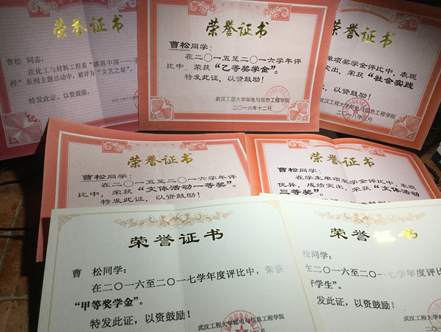 荣誉证书
曹松 同志:
在化工与材料工程系“
系列主题活动中,被评为“文艺之星”,
特发此证,以资鼓励!
荣誉证书
曹松同学:
在二〇一五至二〇一六学年评
比中,荣获“乙等奖学金”。
特发此证,以资鼓励!
武汉工程大学邮电与信息工程学院
二〇一六年十二月
荣誉证书
单项奖学金评比中,表现
突出,荣获“社会实践
特发此证,以资鼓励!
武汉工程大学邮电与信息工程学院
荣誉证书
曹松同学:
在二〇一五至二〇一六学年评
比中,荣获“文体活动一等奖”。
特发此证,以资鼓励!
荣誉证书
曹松同学:
在学生单项奖学金评比中,表现
优异,成绩突出,荣获“文体活动
三等奖”。
特发此证,以资鼓励!
荣誉证书
曹 松同学:
在二〇一六至二〇一七学年度评比中,荣获
“甲等奖学金”。
特发此证,以资鼓励!
武汉工程大学邮电与信息工程学院
荣誉证书
松同学:
在二〇一六至二〇一七学年度评
学生”。
发此证,以资鼓励!
武汉工程大学邮电与信息工程学院